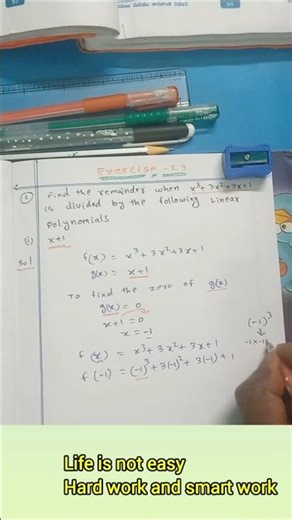 Exercise - 2.3
① Find the remainder when x³+3x²+3x+1
is divided by the following Linear
Polynomials
(i) x+1
Sol
f(x) = x³+3x²+3x+1
g(x) = x+1
To find the zero of g(x)
g(x) = 0
x+1 = 0
x = -1
f(x) = x³+3x²+3x+1
f(-1) = (-1)³+3(-1)²+3(-1)+1
(-1)³
-1x-1
Life is not easy
Hard work and smart work